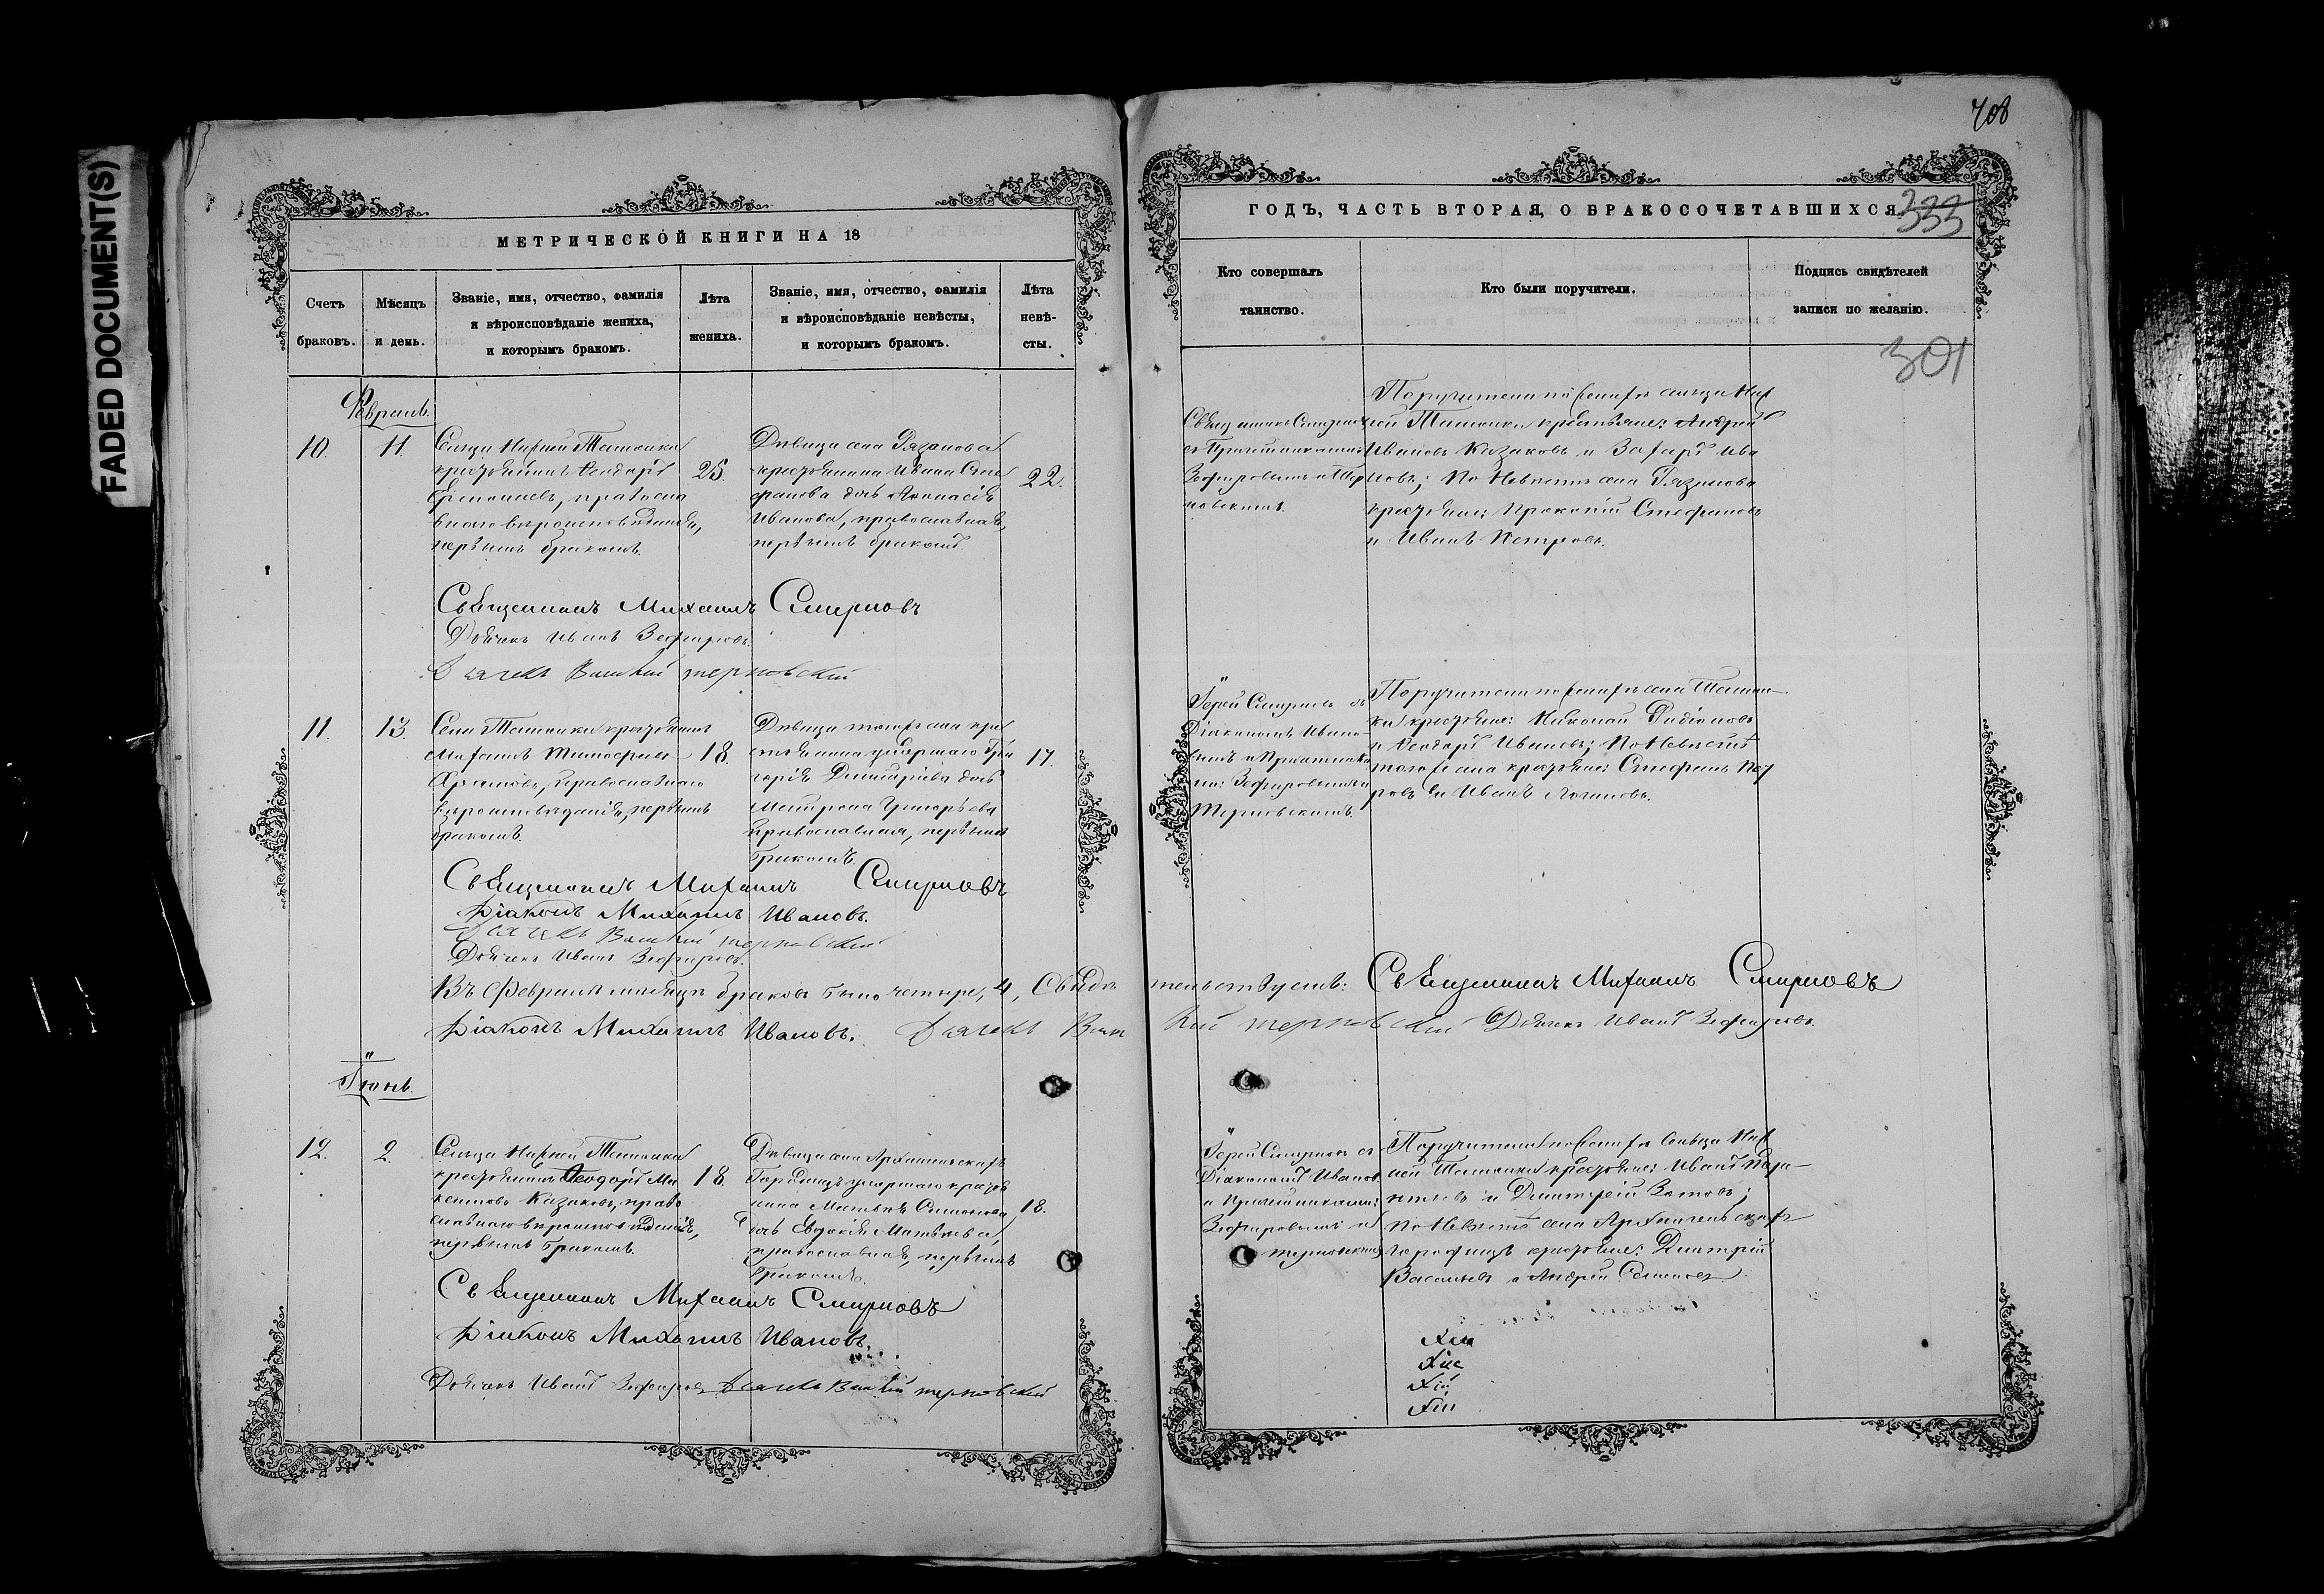 FADED DOCUMENT(S)
МЕТРИЧЕСКОЙ КНИГИ НА 18
Счетъ
браковъ.
Мѣсяцъ
и день.
Званіе, имя, отчество, фамилія
и вѣроисповѣданіе жениха,
и которымъ бракомъ.
Лѣта
жениха.
Званіе, имя, отчество, фамилія
и вѣроисповѣданіе невѣсты,
и которымъ бракомъ.
Лѣта
невѣ-
сты.
Февраль.
10.
11.
крестьянинъ Ѳеодоръ
православ
наго вѣроисповѣданія,
первымъ бракомъ.
25.
Дѣвица села Рязанова
крестьянина Ивана Сте
фанова дочь
Иванова, православная,
первымъ бракомъ
22.
Священникъ Михаилъ Смирновъ
Дьячекъ Иванъ Зефировъ.
Дьячекъ Терновский
11.
13.
Села Ташолки крестьянинъ
18.
православнаго
вѣроисповѣданія, первымъ
бракомъ.
Дѣвица того же села кре
стьянина умершаго Гри
горія Димитріева дочь
Григорьева
православная, первымъ
бракомъ.
17.
Священникъ Михаилъ Смирновъ
Діаконъ Михаилъ Ивановъ.
Дьячекъ Терновский
Дьячекъ Иванъ Зефировъ.
Въ Февралѣ мѣсяцѣ браковъ было четыре, 4, Свидѣ
Діаконъ Михаилъ Ивановъ. Дьячекъ
Іюнь.
12.
2.
крестьянинъ Ѳеодоръ
Казаковъ, право
славнаго вѣроисповѣданія,
первымъ бракомъ.
18.
Дѣвица села Архангельскихъ
Городищъ умершаго кресть
янина
дочь Евдокія Матвѣева,
православная, первымъ
бракомъ.
18.
Священникъ Михаилъ Смирновъ
Діаконъ Михаилъ Ивановъ.
Дьячекъ Иванъ Зефировъ Дьячекъ Терновский
708
ГОДЪ, ЧАСТЬ ВТОРАЯ, О БРАКОСОЧЕТАВШИХСЯ
333
Кто совершалъ
таинство.
Кто были поручители.
Подпись свидѣтелей
записи по желанію.
301
Священникъ Смирновъ
съ Причетниками
Зефировымъ и Тер
новскимъ.
Поручители по женихѣ сельца Ниж
ней Ташолки крестьяне: Андрей
Ивановъ Казаковъ и Захаръ Ива
новъ; по невѣстѣ села Рязанова
крестьяне: Прокопій Стефановъ
и Иванъ Петровъ.
Іерей Смирновъ съ
Діакономъ Ивано-
вымъ и Причетника
ми: Зефировымъ и
Терновскимъ.
Поручители по женихѣ села Ташол-
ки крестьяне: Николай
и Ѳеодоръ Ивановъ; по невѣстѣ
того же села крестьяне: Стефанъ Пет
ровъ и Иванъ Логиновъ.
тельствуемъ: Священникъ Михаилъ Смирновъ
Терновский Дьячекъ Иванъ Зефировъ.
Іерей Смирновъ съ
Діакономъ Иванов.
и Причетниками:
Зефировымъ и
Терновским
Поручители по женихѣ сельца Ниж
ней Ташолки крестьяне: Иванъ
и Димитрій
по невѣстѣ села Архангельскихъ
Городищъ крестьяне: Дмитрій
Васильевъ и Андрей